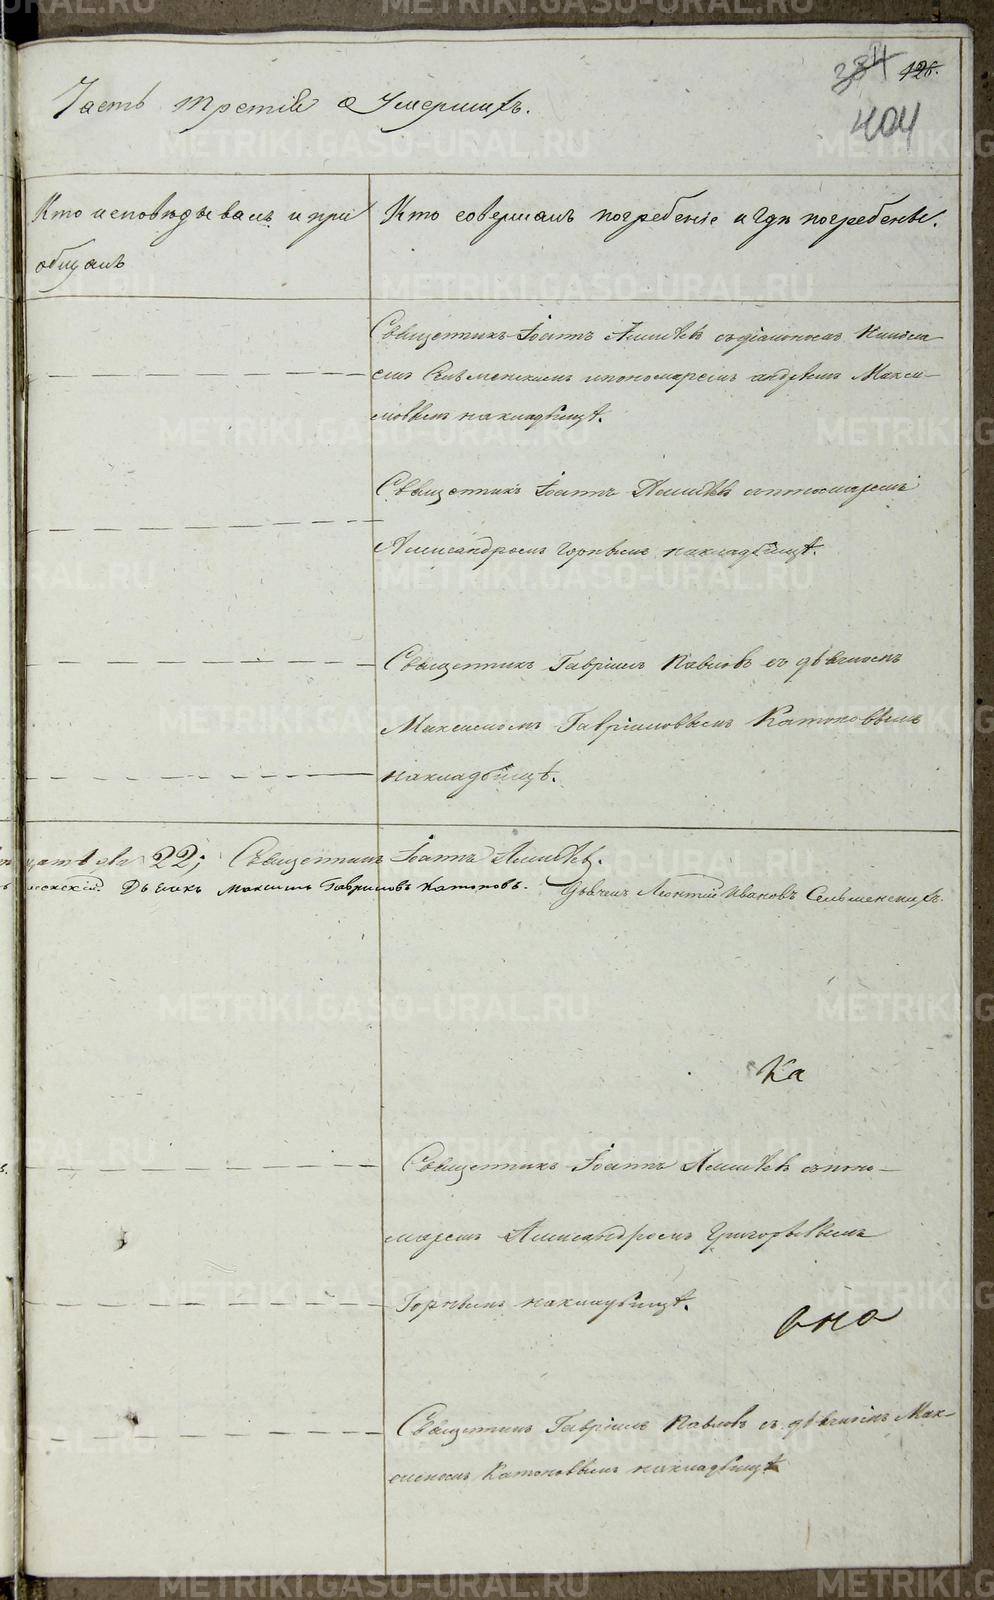 384 126.
404
Часть третія о Умершихъ.
Кто исповѣдывалъ и прі
общалъ
Кто совершалъ погребеніе и гдѣ погребены.
Священникъ Іоаннъ съ діакономъ
Сельменскимъ и пономаремъ андреемъ Макси-
мовымъ на кладбищѣ.
Священникъ Іоаннъ с пономаремъ
Александромъ Горнымъ на кладбищѣ.
Священникъ Гавріилъ Павловъ съ дьячкомъ
Максимомъ Гавриловымъ Катоновымъ
на кладбищѣ.
22; Священникъ Іоаннъ
Дьячекъ Максимъ Гавриловъ Катоновъ. Дьячекъ Леонтій Ивановъ Сельменскихъ.
Ка
Священникъ Іоаннъ съ поно-
маремъ Александромъ Григорьевымъ
Горнымъ на кладбищѣ.
Священникъ Гавріилъ Павловъ съ дьячкомъ Мак-
симомъ Катоновымъ на кладбищѣ
METRIKI.GASO-URAL.RU